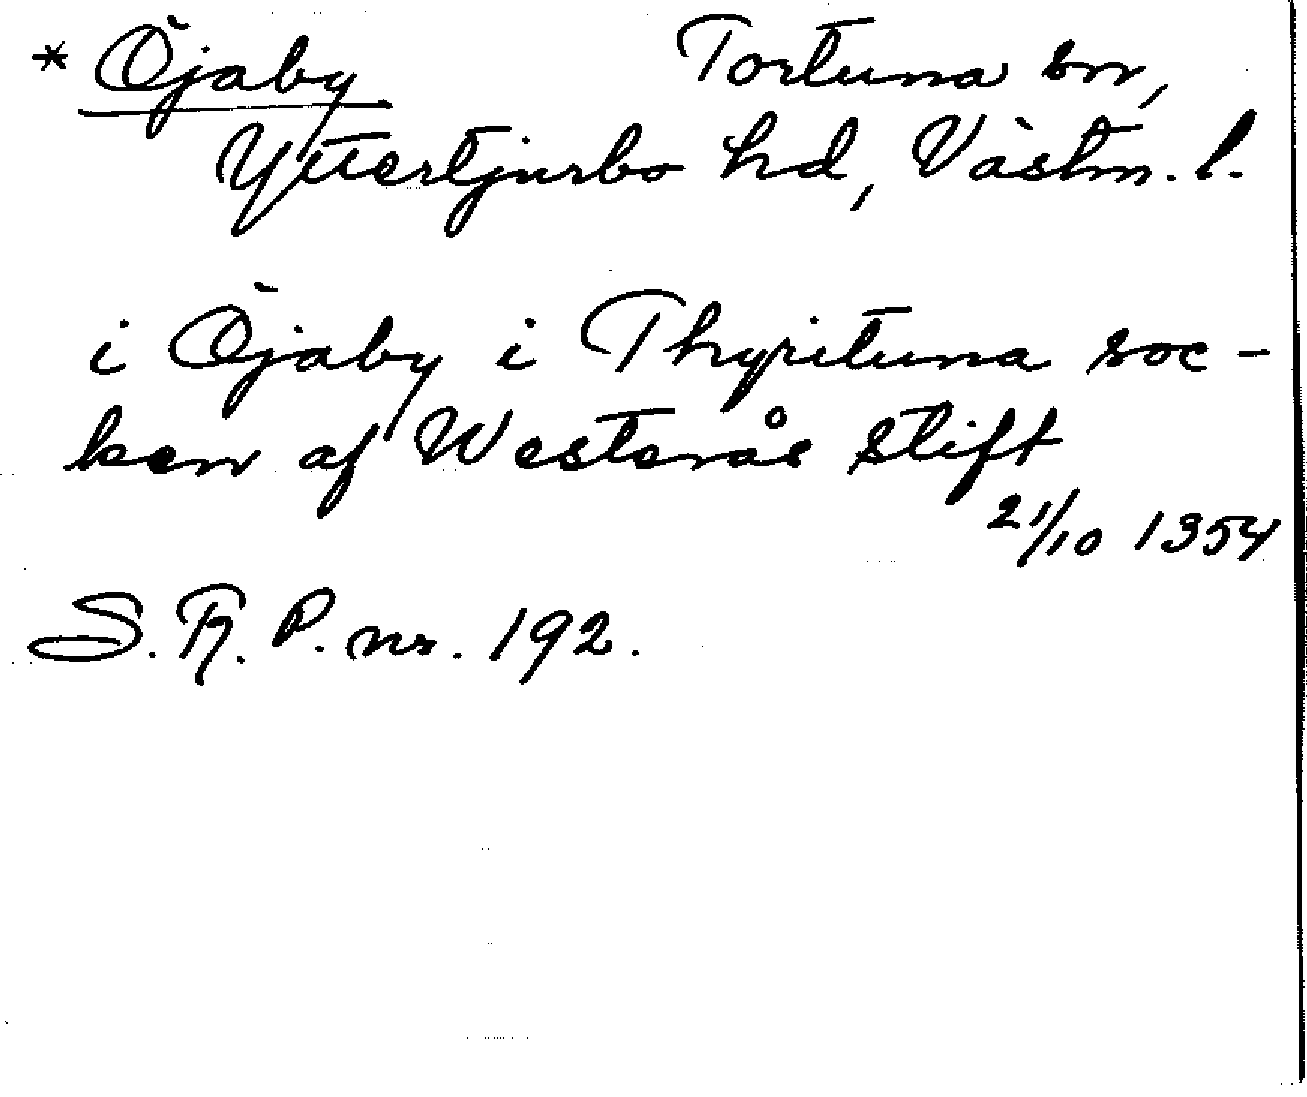 * Öjaby Tortuna sn,
Yttertjurbo hd, Västm. l.
i Öjaby i Thyrituna soc-
ken af Westerås stift
21/10 1354
S. R. P. nr. 192.